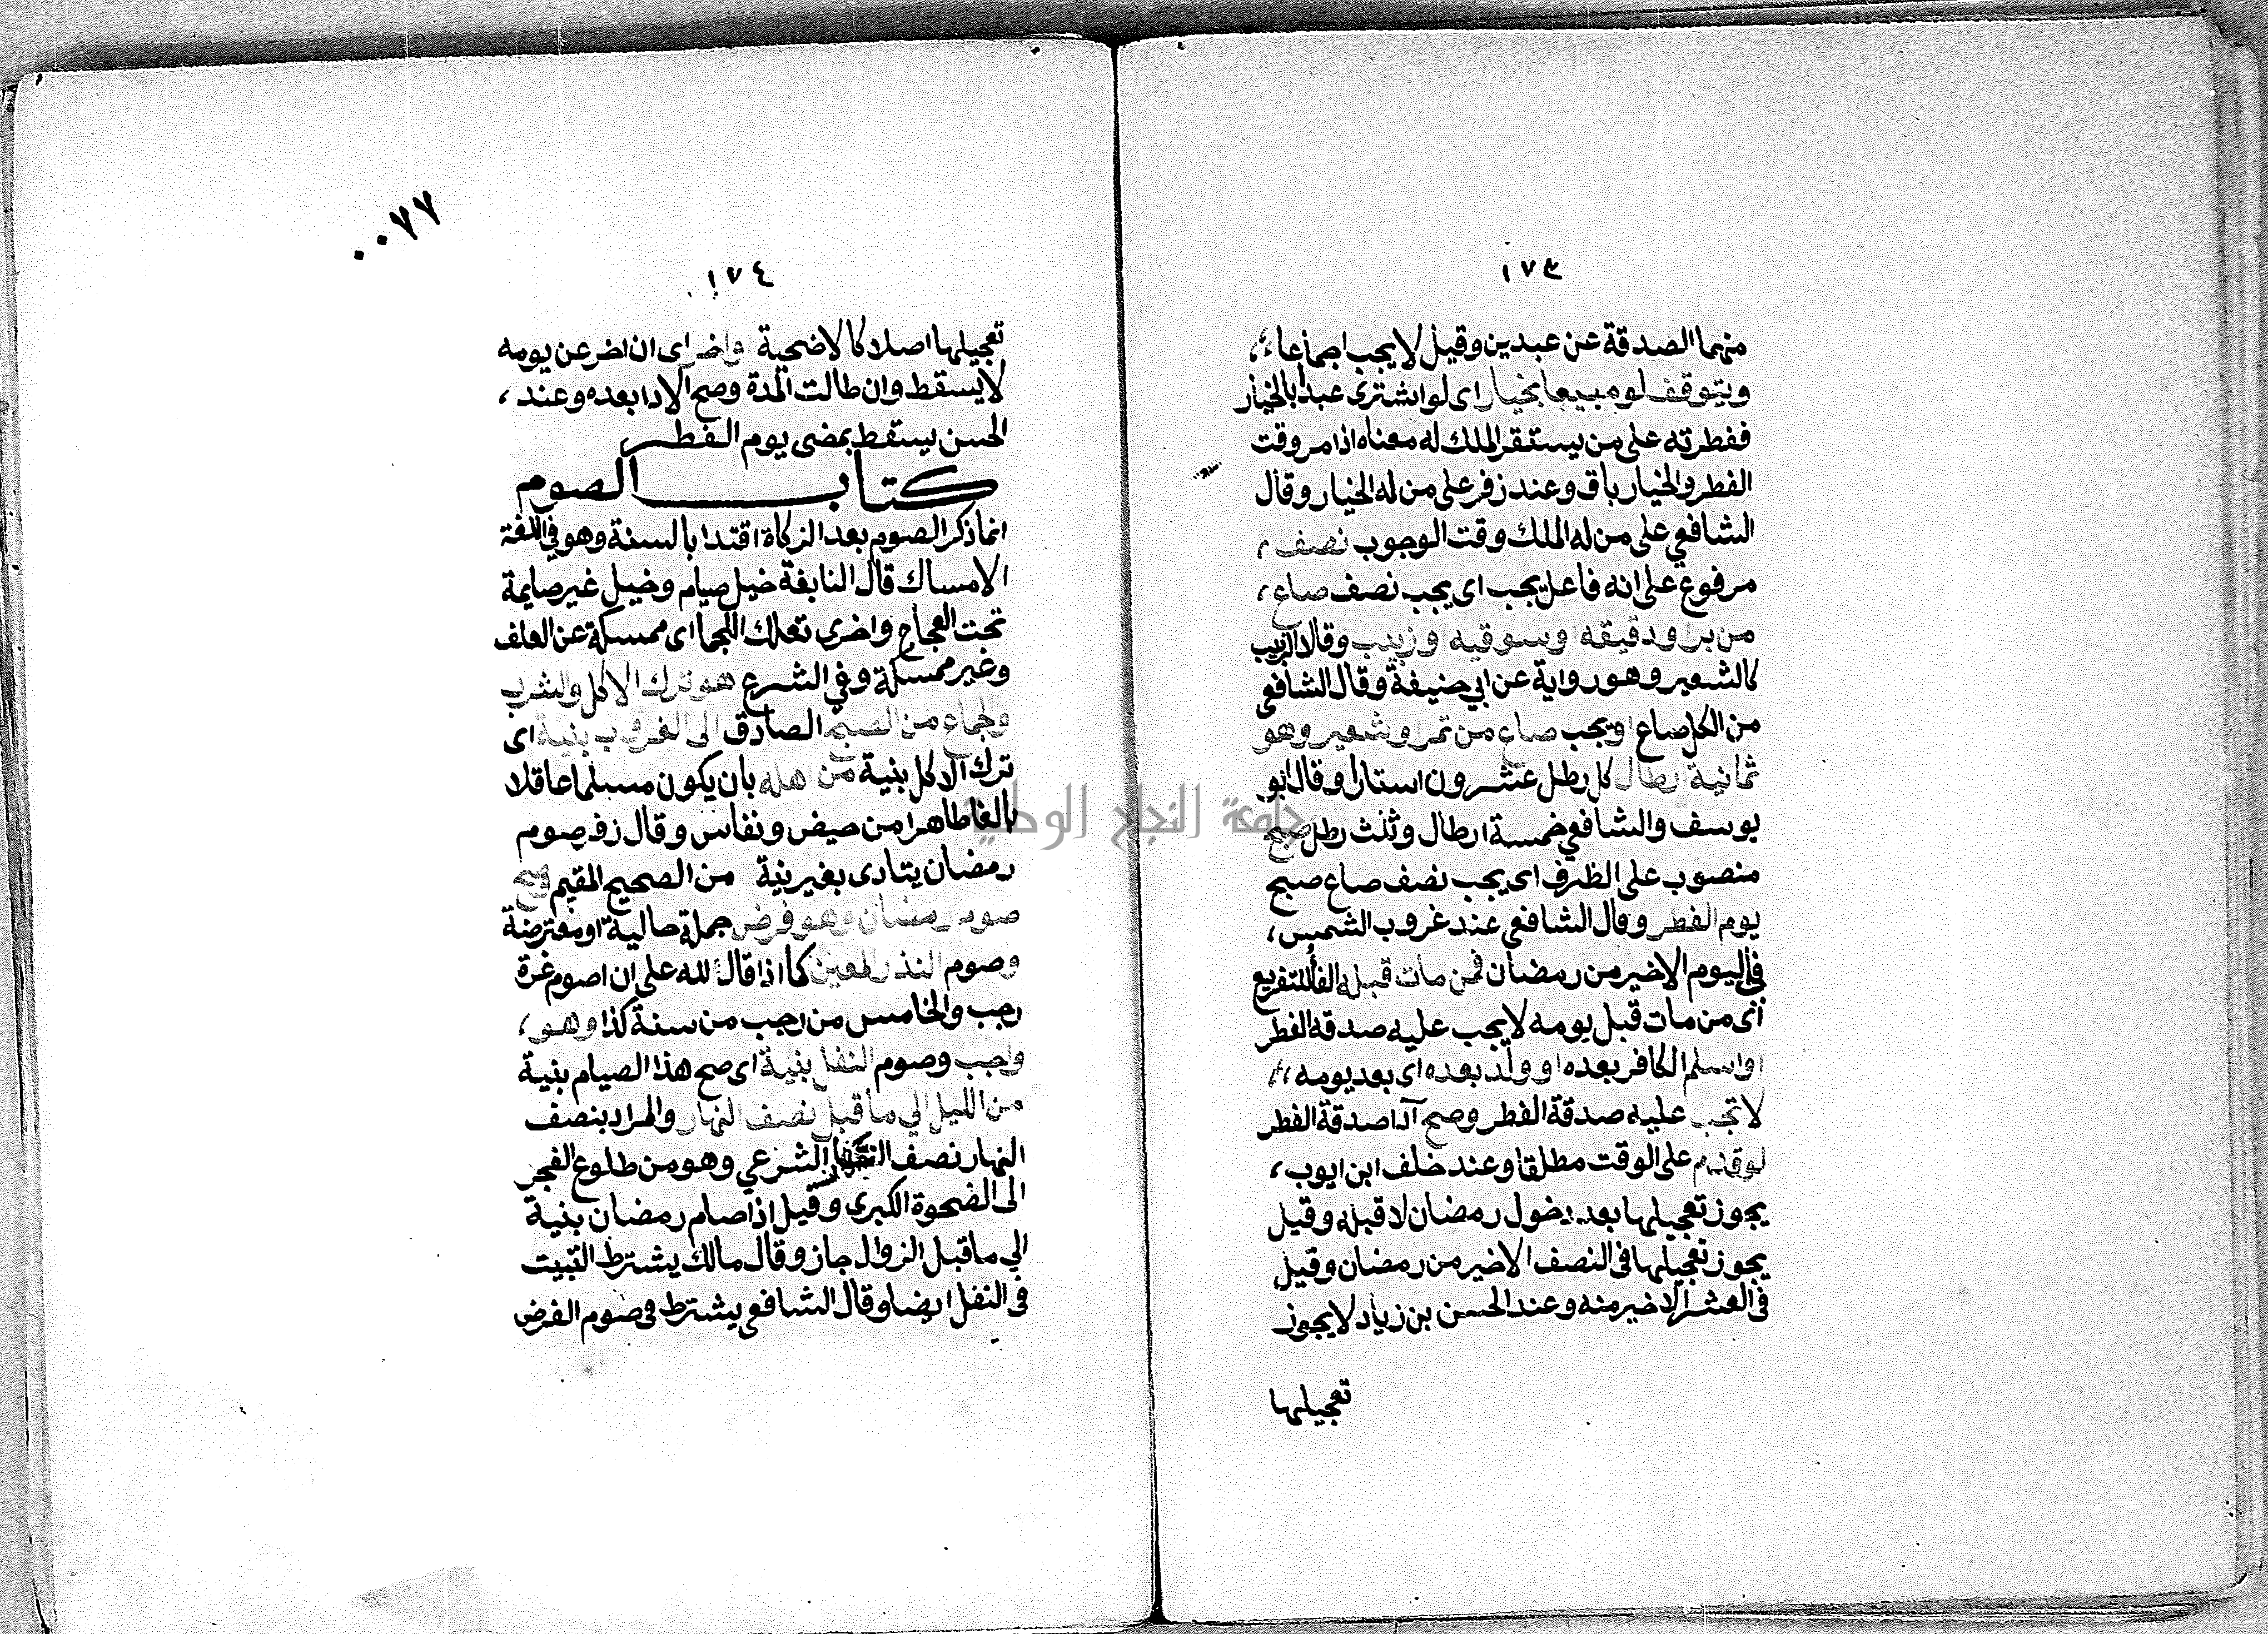 ١٧٣
منهما الصدقة عن عبدين وقيل لا يجب اجماعا،
ويتوقف لو مبيعا بخيار اى لو اشترى عبدا بالخيار
ففطرته على من يستقر الملك له معناه اذا مر وقت
الفطر والخيار باق وعند زفر على من له الخيار وقال
الشافعي على من له الملك وقت الوجوب نصف،
مرفوع على انه فاعل يجب اى يجب نصف صاع،
من بر او دقيقه او سوقيه وزبيب وقالا الزبيب
كالشعير وهو رواية عن ابي حنيفة وقال الشافعي
من الكل صاع او يجب صاع من تمر او شعير وهو
ثمانية ارطال كل رطل عشرون استارا وقال ابو
يوسف والشافعي خمسة ارطال وثلث رطل صبح
منصوب على الظرف اى يجب نصف صاع صبح
يوم الفطر وقال الشافعي عند غروب الشمس،
في اليوم الاخير من رمضان فمن مات قبله الفا للتفريع
اى من مات قبل يومه لا يجب عليه صدقة الفطر
او اسلم الكافر بعده او ولد بعده اى بعد يومه،
لا تجب عليه صدقة الفطر وصح آدا صدقة الفطر
لو قدم على الوقت مطلقا وعند خلف ابن ايوب،
يجوز تعجيلها بعد دخول رمضان لا قبله وقيل
يجوز تعجيلها فى النصف الاخير من رمضان وقيل
فى العشر الاخير منه وعند الحسن بن زياد لا يجوز
تعجيلها
٠٠٧٧
١٧٤
تعجيلها اصلا كالاضحية واخر اى ان اخر عن يومه
لا يسقط وان طالت المدة وصح الادا بعده وعند،
الحسن يسقط بمضى يوم الفطر
كتاب الصوم
انما ذكر الصوم بعد الزكاة اقتدا بالسنة وهو في اللغة
الامساك قال النابغة خيل صيام وخيل غير صايمة
تحت العجاج واخرى تعلك اللجما اى ممسكة عن العلف
وغير ممسكة وفي الشرع هو ترك الاكل والشرب
والجماع من الصبح الصادق الى الغروب بنية اى
ترك الاكل بنية من اهله بان يكون مسلما عاقلا
بالغا طاهرا من حيض ونفاس وقال زفر صوم
رمضان يتادى بغير نية من الصحيح المقيم وصح
صوم رمضان وهو فرض جملة حالية او معترضة
وصوم النذر المعين كما اذا قال لله على ان اصوم غرة
رجب والخامس من رجب من سنة كذا وهو،
واجب وصوم النفل بنية اى صح هذا الصيام بنية
من الليل الي ما قبل نصف النهار والمراد بنصف
النهار نصف النهار الشرعي وهو من طلوع الفجر
الى الضحوة الكبرى وقيل اذا صام رمضان بنية
الي ما قبل الزوال جاز وقال مالك يشترط التبيت
فى النفل ايضا وقال الشافعي يشترط فى صوم الفرض
جامعة النجاح الوطنية